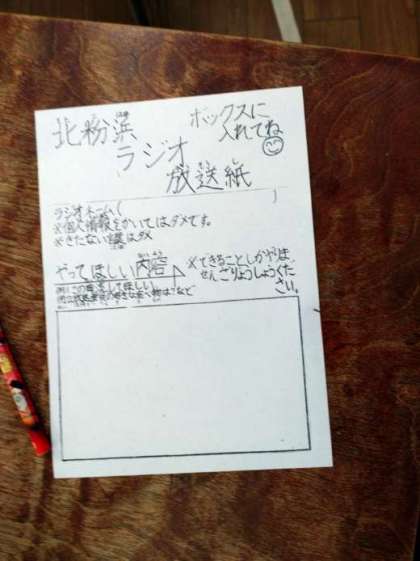 北粉浜
ラジオ
放送紙
ボックスに
入れてね
ラジオネーム( )
※個人情報をかいてはダメです。
※きたない言葉はダメ
やってほしい内容
※できることしかやりま
せんごりょうしょうくだ
さい。
例)この曲流してほしい